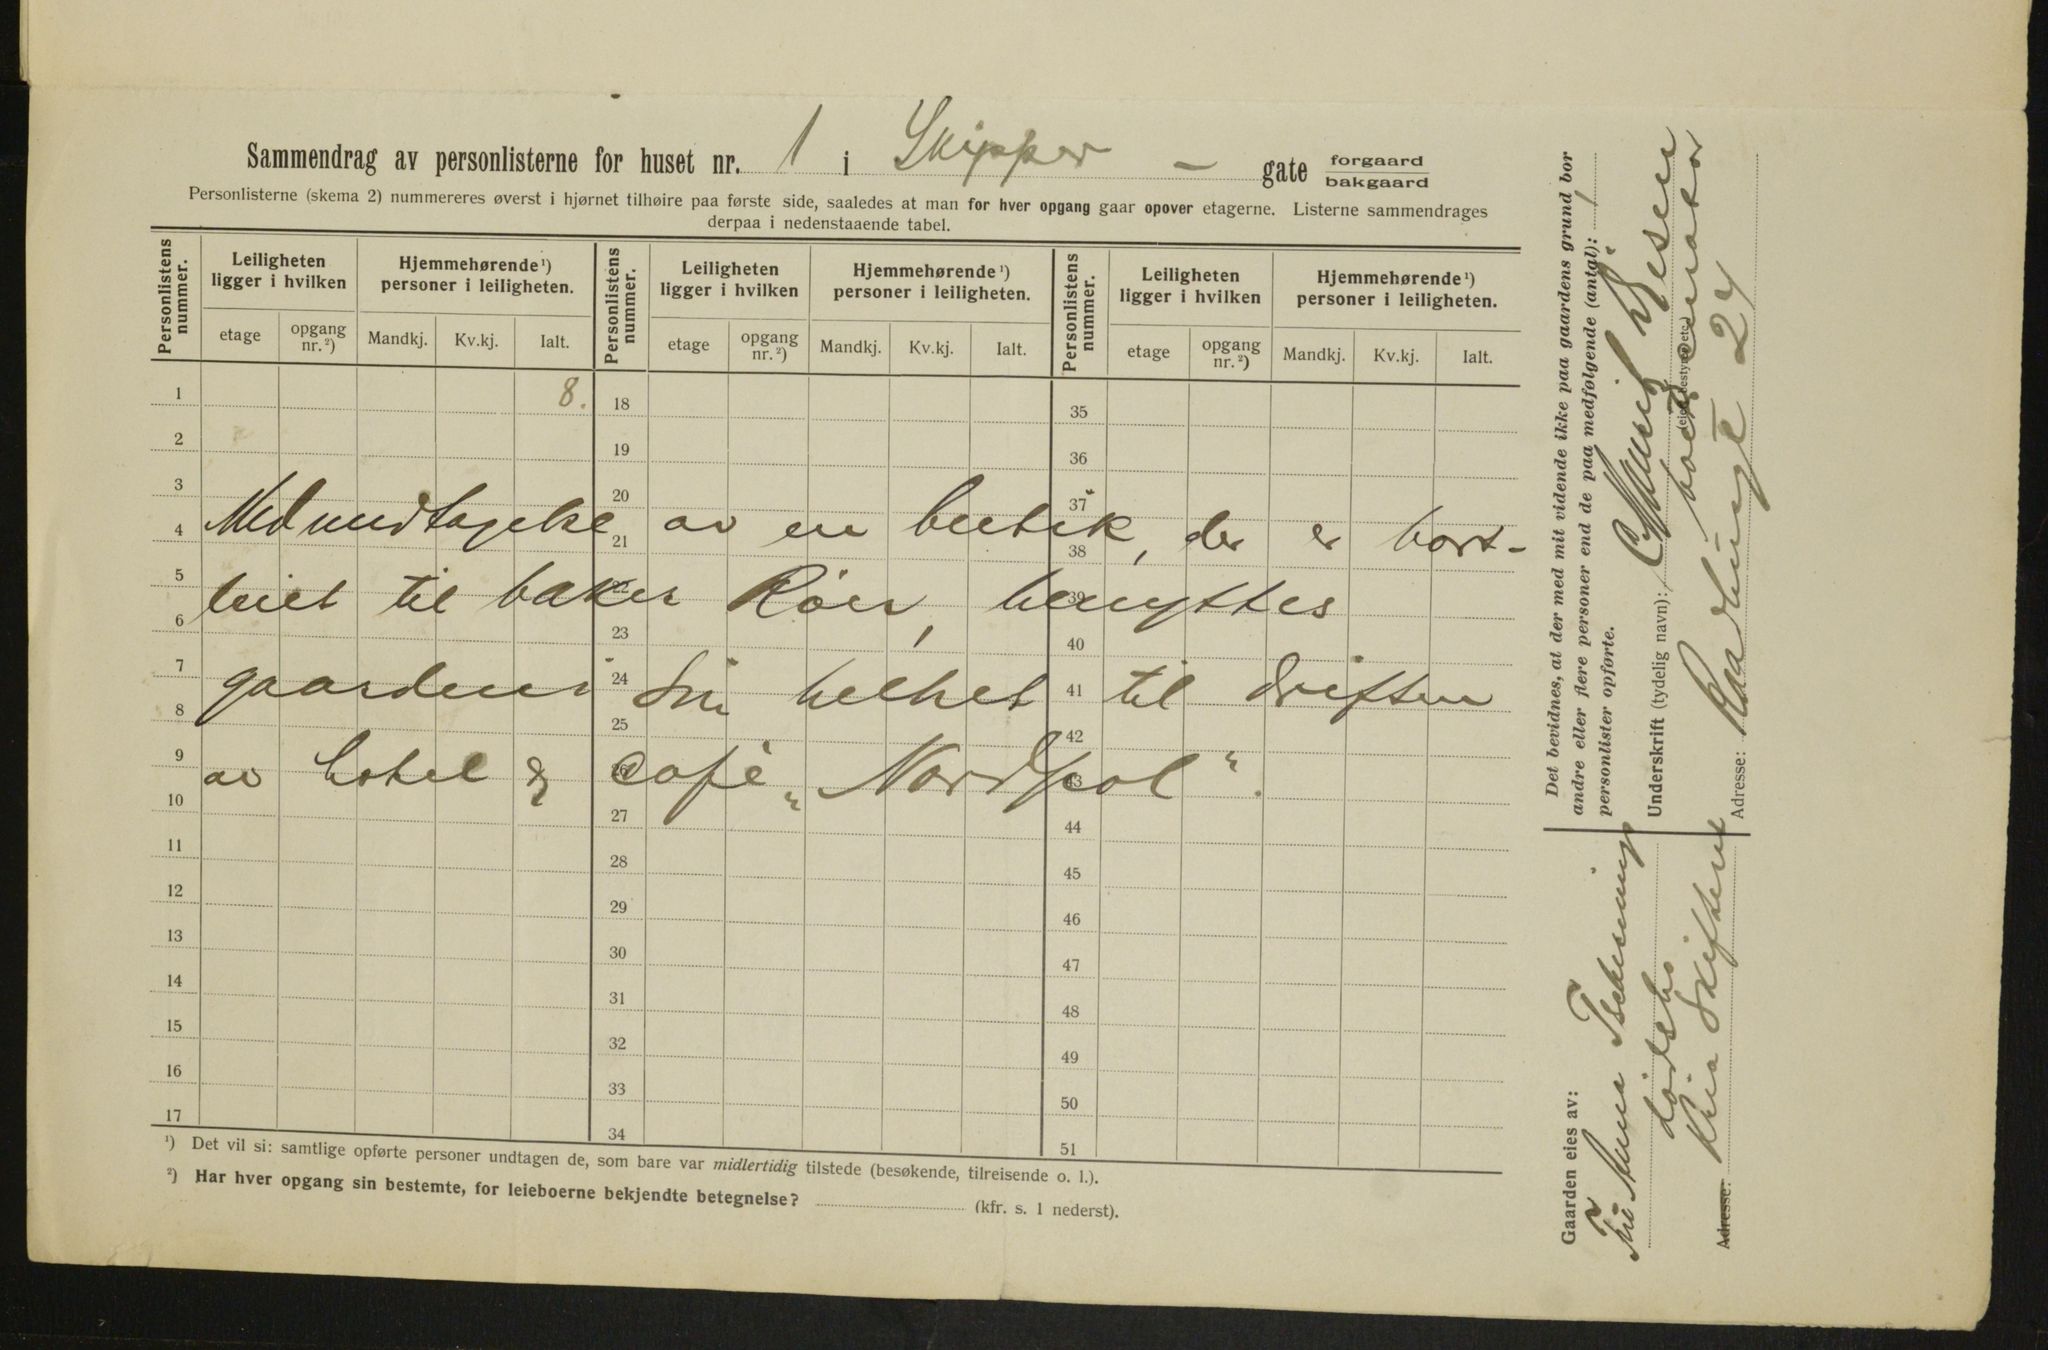 Sammendrag av personlisterne for huset nr. 1 i Skipper - gate forgaard
bakgaard
Personlisterne (skema 2) nummereres øverst i hjørnet tilhøire paa første side, saaledes at man for hver opgang gaar opover etagerne. Listerne sammendrages
derpaa i nedenstaaende tabel.
Personlistens nummer. Leiligheten ligger i hvilken Hjemmehørende ¹) personer i leiligheten. Personlistens nummer. Leiligheten ligger i hvilken Hjemmehørende ¹) personer i leiligheten. Personlistens nummer. Leiligheten ligger i hvilken Hjemmehørende ¹) personer i leiligheten.
etage opgang nr. ²) Mandkj. Kv.kj. Ialt. etage opgang nr. ²) Mandkj. Kv.kj. Ialt. etage opgang nr. ²) Mandkj. Kv.kj. Ialt.
1 8. 18 35
2 19 36
3 20 37
4 21 38
Med undtagelse av en butik, der er bort-
5 22 39
leiet til baker Röer, benyttes
6 23 40
7 24 41
gaarden i sin helhet til driften
8 25 42
9 26 43
av hotel & café „Nordpol".
10 27 44
11 28 45
12 29 46
13 30 47
14 31 48
15 32 49
16 33 50
17 34 51
¹) Det vil si: samtlige opførte personer undtagen de, som bare var midlertidig tilstede (besøkende, tilreisende o. l.).
²) Har hver opgang sin bestemte, for leieboerne bekjendte betegnelse? (kfr. s. 1 nederst).
Det bevidnes, at der med mit vidende ikke paa gaardens grund bor
andre eller flere personer end de paa medfølgende (antal): 1
personlister opførte.
Underskrift (tydelig navn):
(eier, bestyrer etc.)
Adresse: Raadhusgt 24
Gaarden eies av:
Anna Tschudnings
dødsbo
Adresse: Kria Skifteret